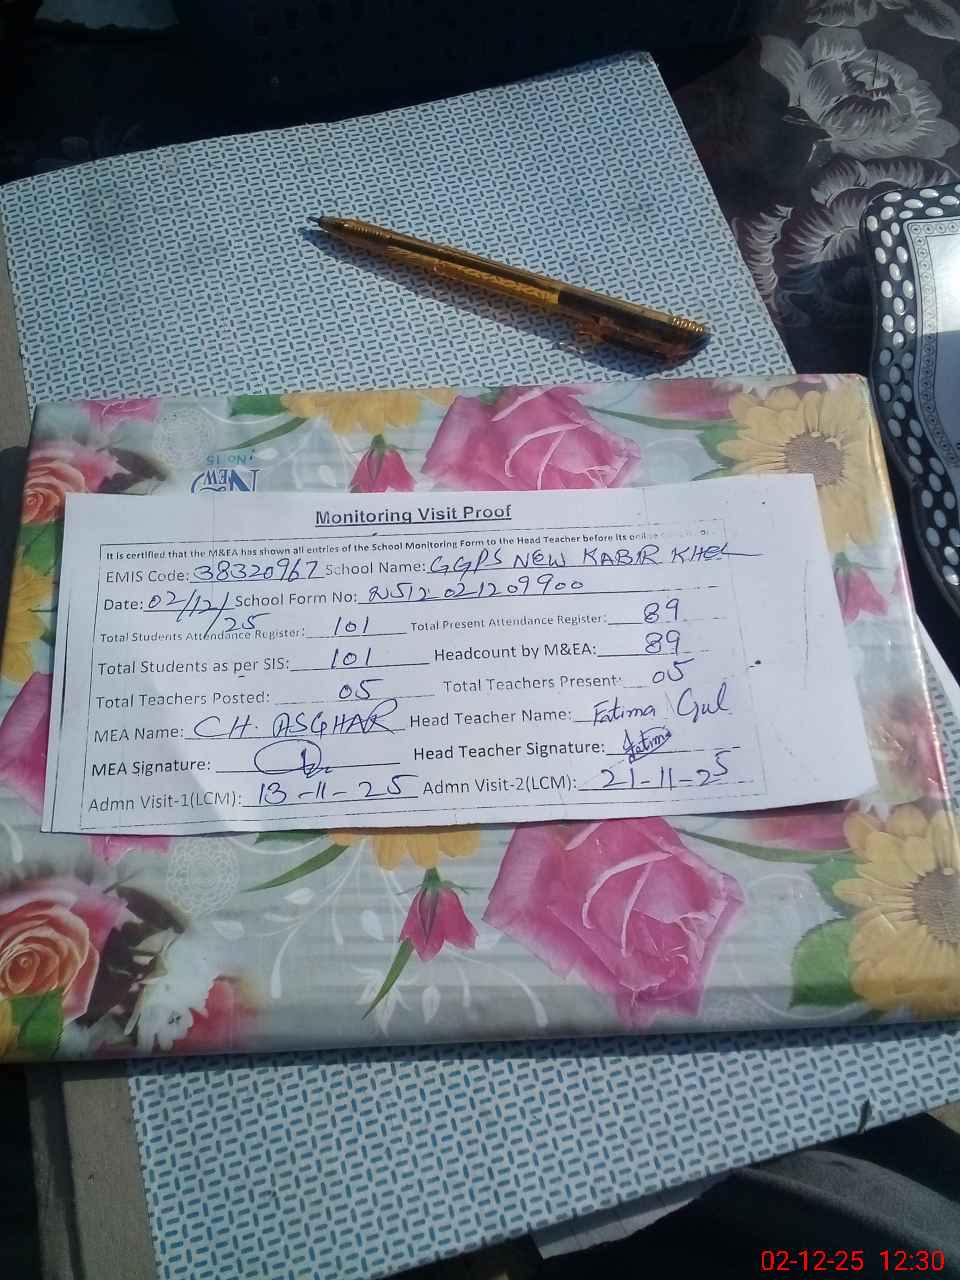 No 15
NEW
Monitoring Visit Proof
It is certified that the M&EA has shown all entries of the School Monitoring Form to the Head Teacher before its online
EMIS Code: 38320967 School Name: GGPS NEW KABIR KHEL
Date: 02/12/25 School Form No: NS12021209900
Total Students Attendance Register: 101 Total Present Attendance Register: 89
Total Students as per SIS: 101 Headcount by M&EA: 89
Total Teachers Posted: 05 Total Teachers Present: 05
MEA Name: CH. ASGHAR Head Teacher Name: Fatima Gul
MEA Signature: Head Teacher Signature: Fatima
Admn Visit-1(LCM): 13-11-25 Admn Visit-2(LCM): 21-11-25
02-12-25 12:30